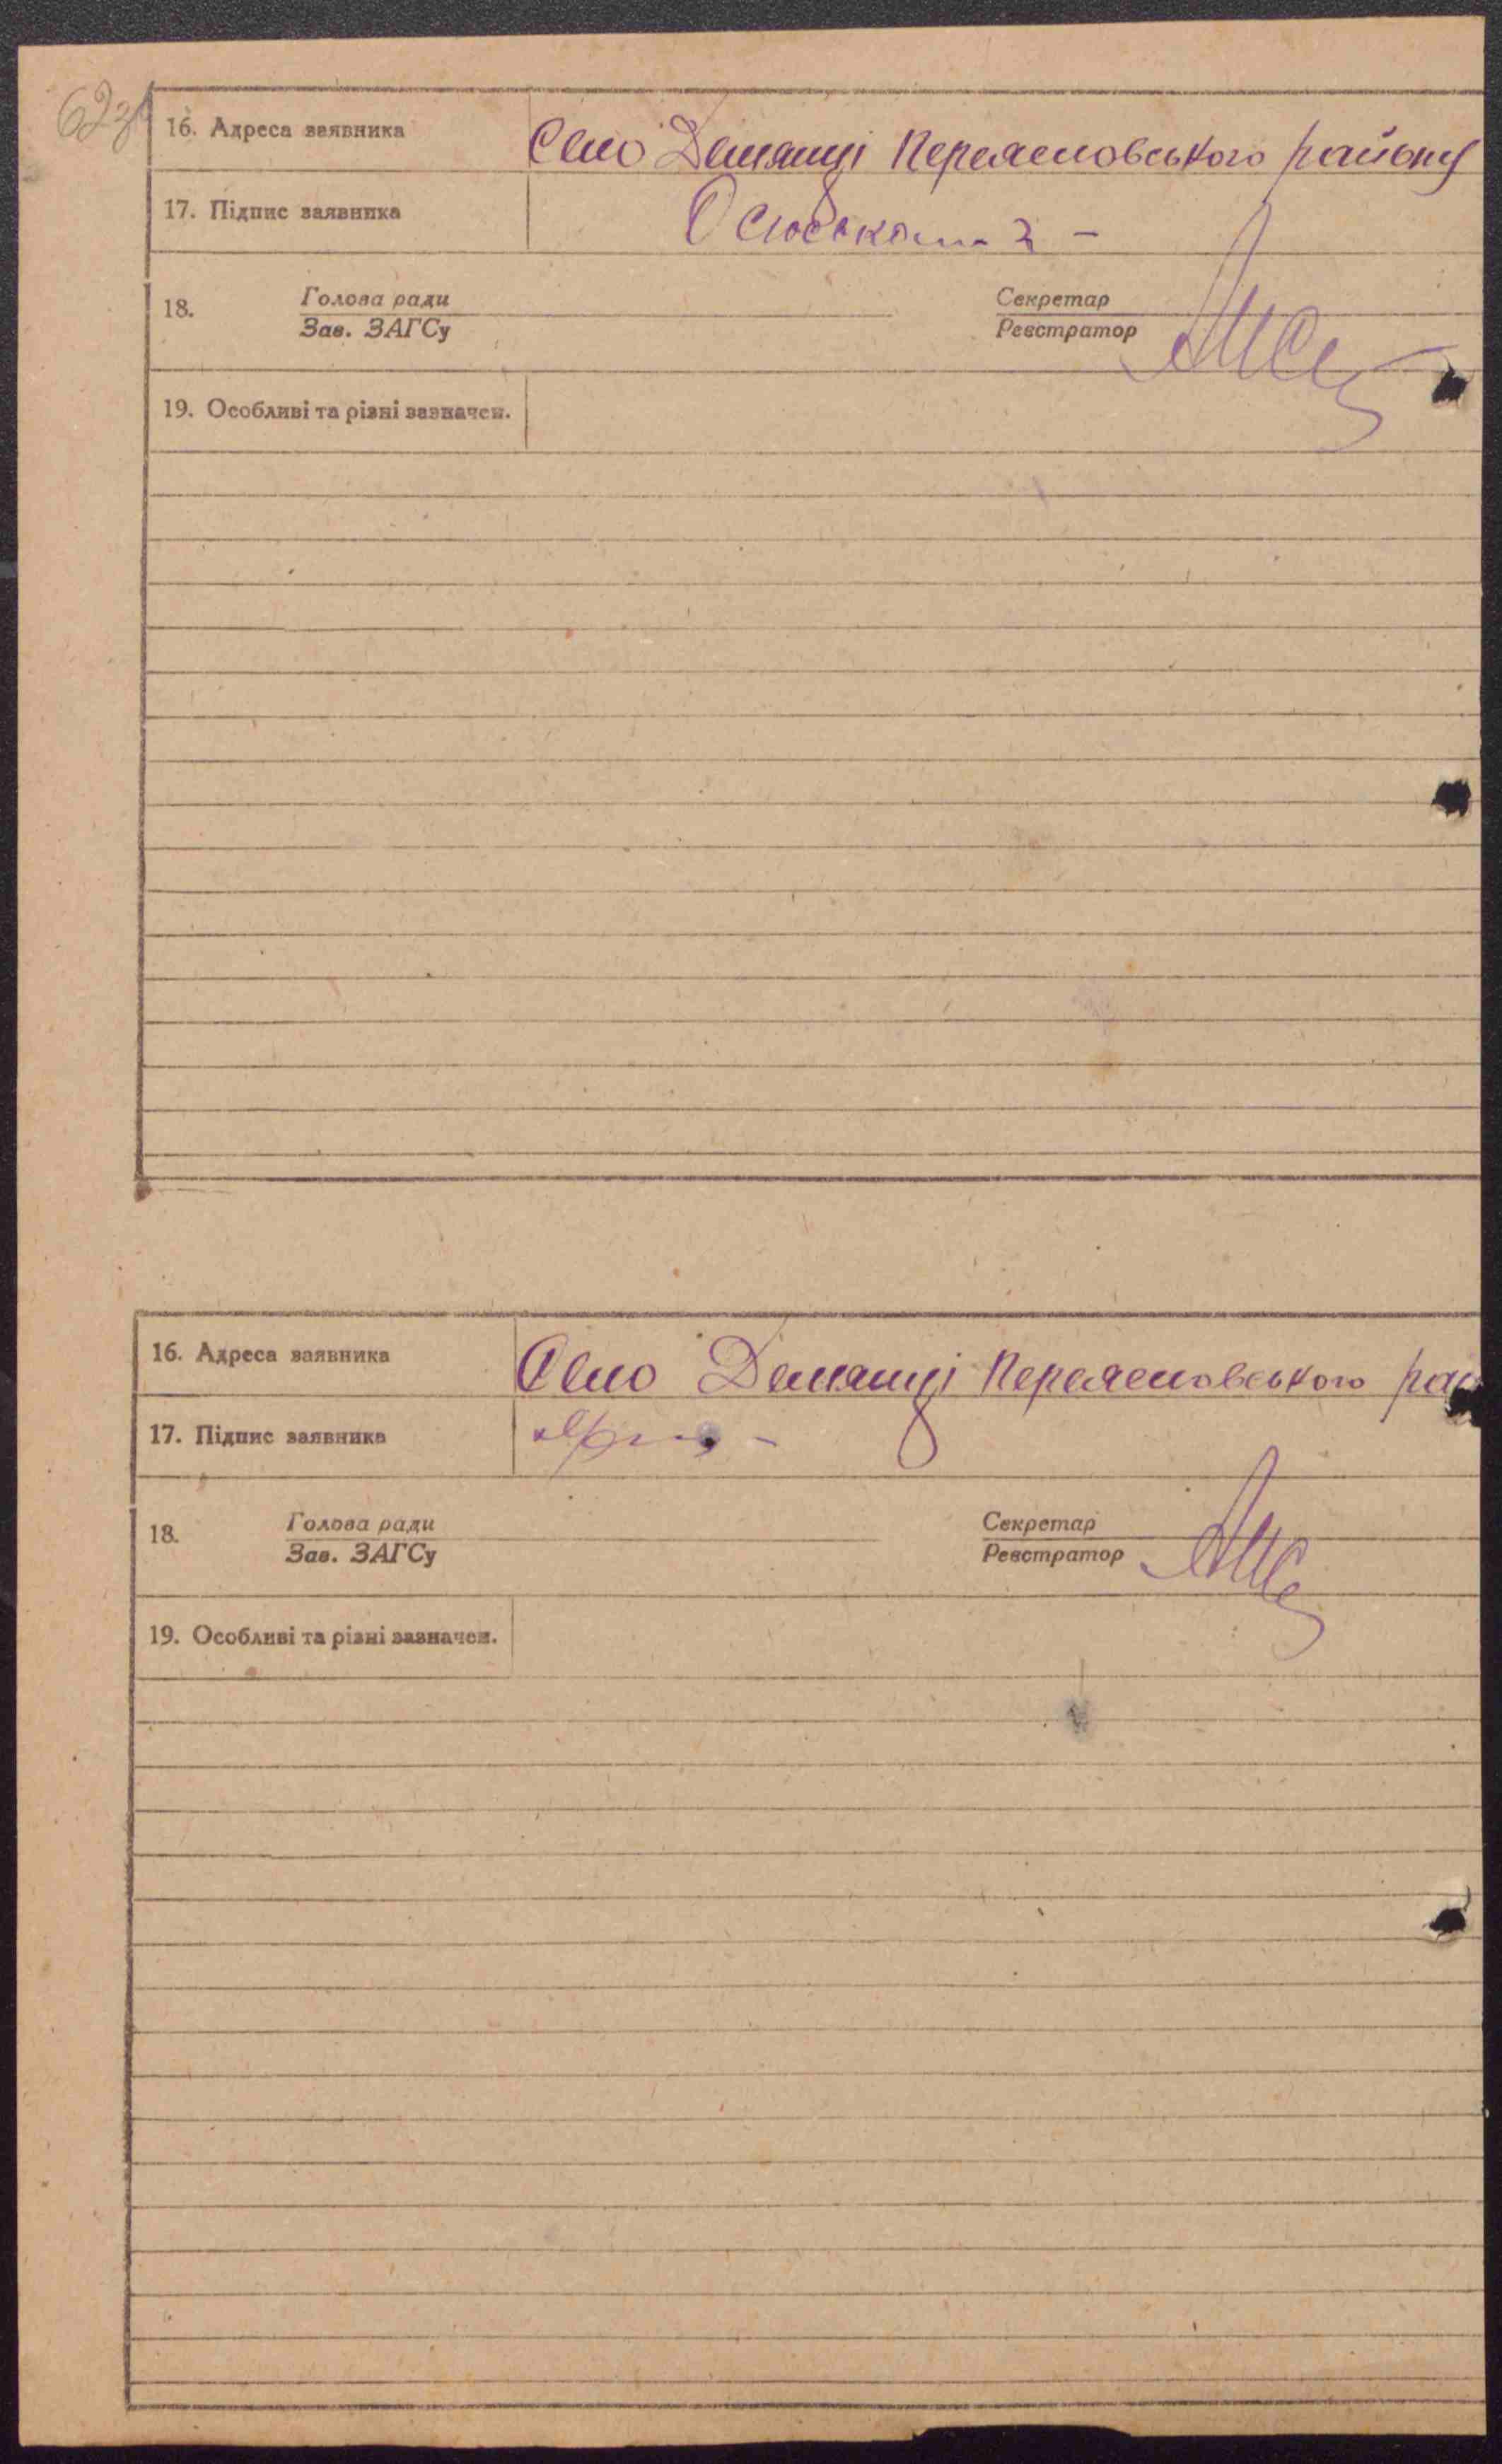 62зв
16. Адреса заявника Село Демянці Переясловського району
17. Підпис заявника
18. Голова ради Секретар
Зав. ЗАГСу Реєстратор
19. Особливі та різні зазначен.
16. Адреса заявника Село Демянці Переясловського рай
17. Підпис заявника
18. Голова ради Секретар
Зав. ЗАГСу Реєстратор
19. Особливі та різні зазначен.